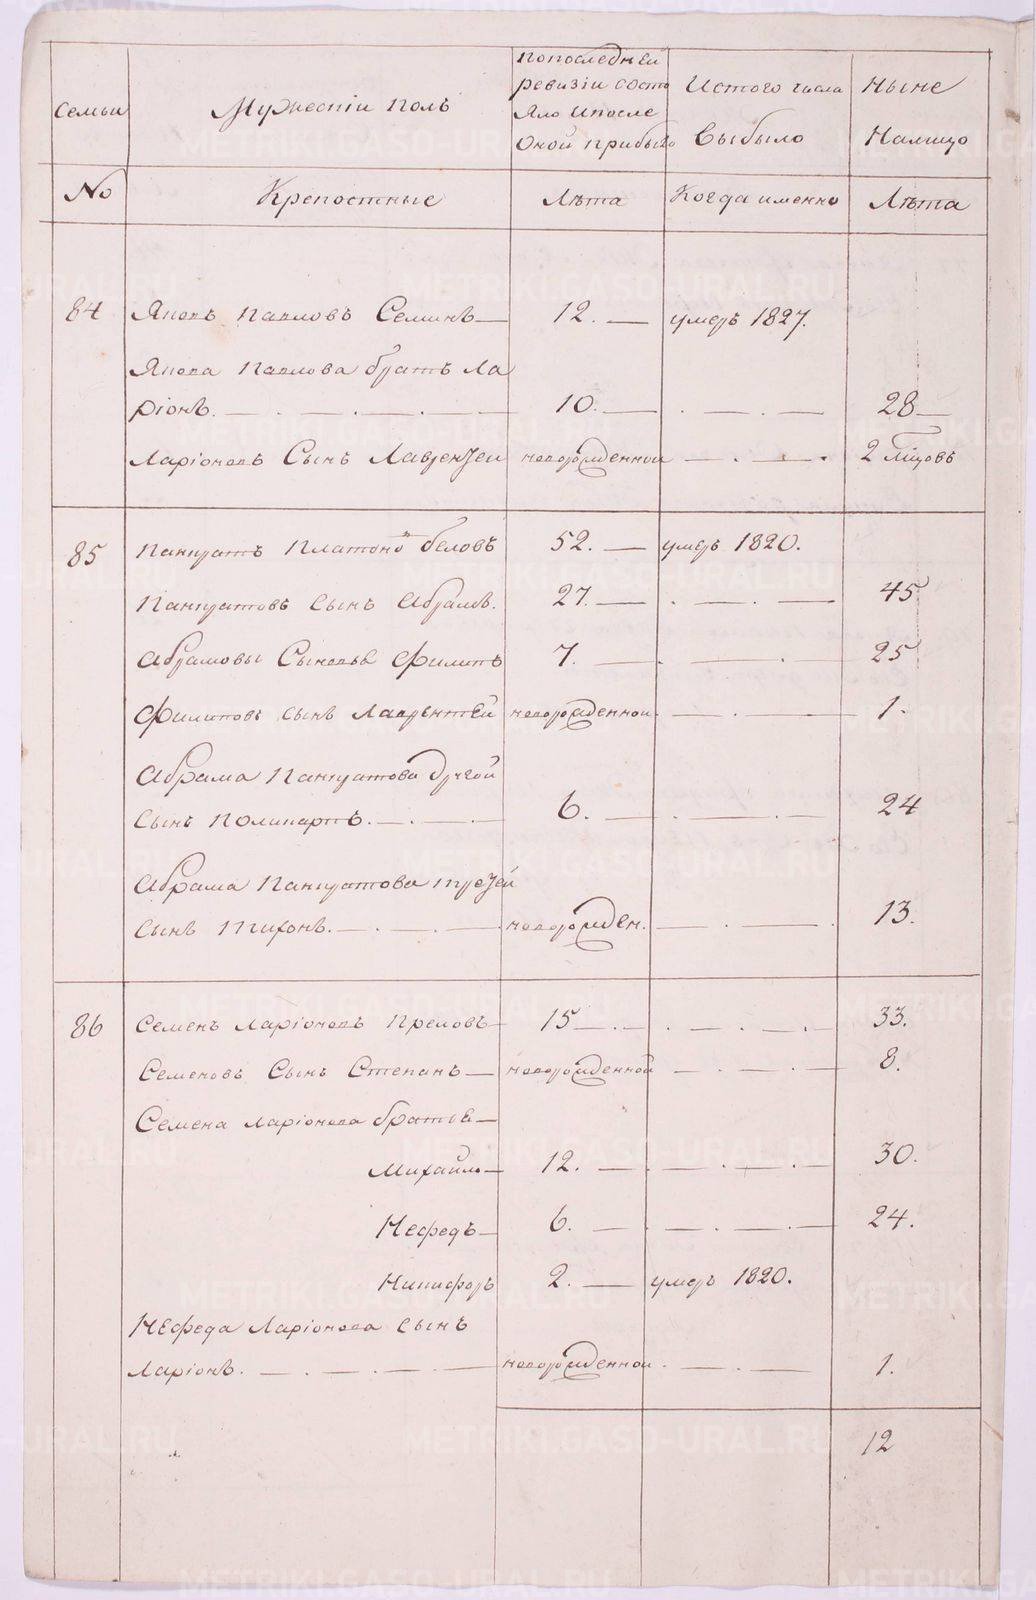 Семьи
Мужескiй полъ
попоследней
ревизiи состо
яло ипосле
оной прибыло
Истого числа
выбыло
Ныне
Налицо
No
Крепостные
Лѣта
Когда именно
Лѣта
84 Яковъ Павловъ Семинъ 12. умеръ 1827.
Якова Павлова братъ Ла
рiонъ. 10. 28
Ларiоновъ Сынъ Лаврентей новорожденной 2
85 Панкратъ Платоно Беловъ 52. умеръ 1820.
Панкратовъ сынъ Абрамъ. 27. 45
Абрамовы Сыновья Филипъ 7. 25
Филиповъ сынъ Лаврентей новорожденной. 1.
Абрама Панкратова другой
сынъ Поликарпъ. 6. 24
Абрама Панкратова третей
сынъ Тихонъ. новорожден. 13.
86 Семенъ Ларiоновъ 15 33.
Семеновъ Сынъ Степанъ новорожденной 8.
Семена Ларiонова братье
Михайло 12. 30.
Нефедъ 6. 24.
Никифоръ 2. умеръ 1820.
Нефеда Ларiонова сынъ
Ларiонъ. новорожденной. 1.
12
METRIKI.GASO-URAL.RU